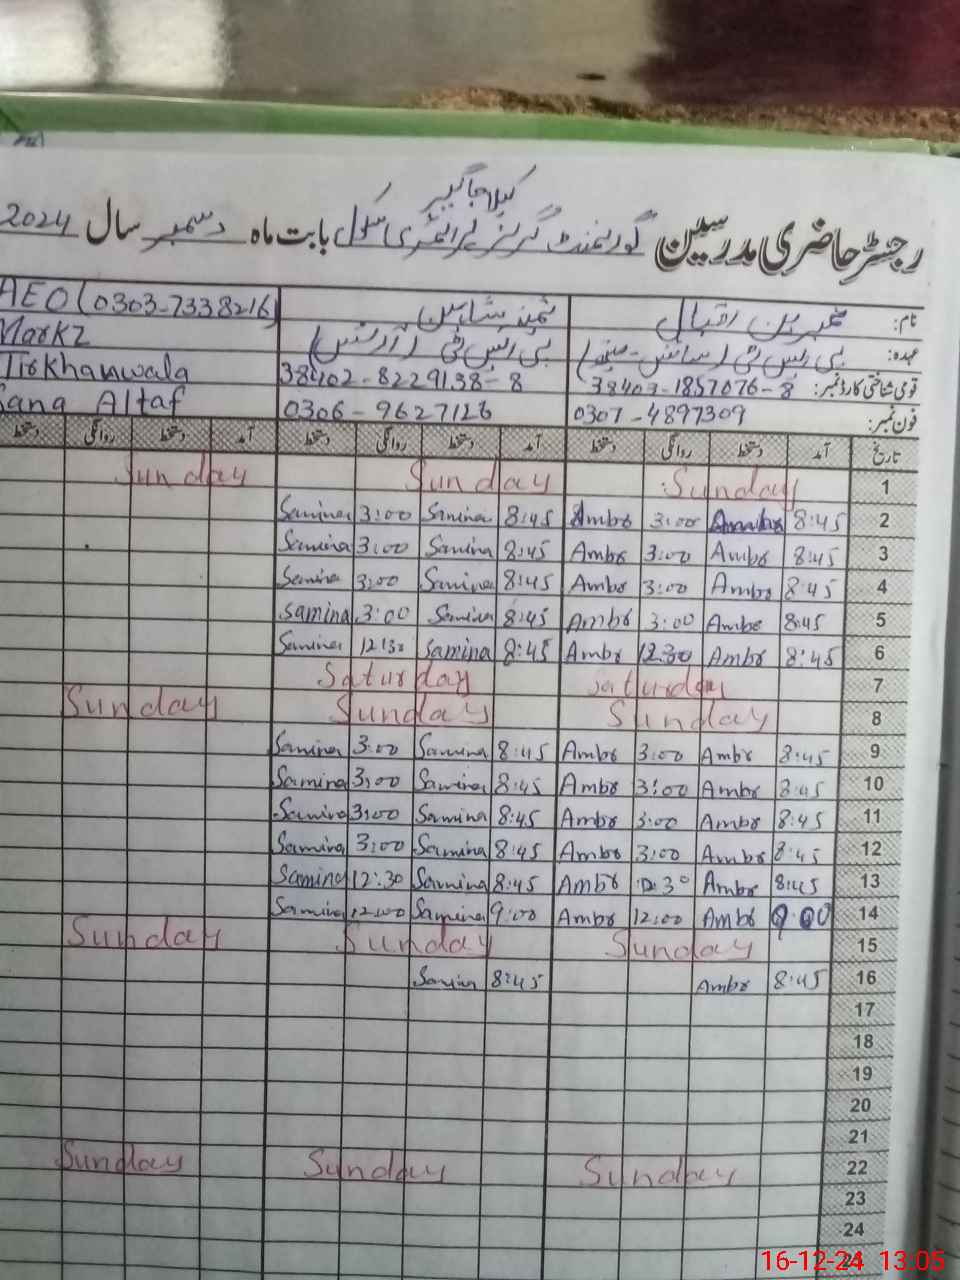 کیلا جاگیر
رجسٹر حاضری مدرسین گورنمنٹ گرلز پرائمری سکول بابت ماہ دسمبر سال 2024
نام: عنبرین اقبال ثمینہ شاہین AEO (0303-7338216)
عہدہ: پی ایس ٹی (سائنس-میتھ) پی ایس ٹی (آرٹس) Markz
قومی شناختی کارڈ نمبر: 38403-1857076-8 38402-8229138-8 Tirkhanwala
فون نمبر: 0307-4897309 0306-9627126 Sana Altaf
تاریخ آمد دستخط روانگی دستخط آمد دستخط روانگی دستخط آمد دستخط روانگی دستخط
1 Sunday Sunday Sunday
2 8:45 Ambr 3:00 Ambr 8:45 Samina 3:00 Samina
3 8:45 Ambr 3:00 Ambr 8:45 Samina 3:00 Samina
4 8:45 Ambr 3:00 Ambr 8:45 Samina 3:00 Samina
5 8:45 Ambr 3:00 Ambr 8:45 Samina 3:00 Samina
6 8:45 Ambr 12:30 Ambr 8:45 Samina 12:30 Samina
7 Saturday Saturday
8 Sunday Sunday Sunday
9 8:45 Ambr 3:00 Ambr 8:45 Samina 3:00 Samina
10 8:45 Ambr 3:00 Ambr 8:45 Samina 3:00 Samina
11 8:45 Ambr 3:00 Ambr 8:45 Samina 3:00 Samina
12 8:45 Ambr 3:00 Ambr 8:45 Samina 3:00 Samina
13 8:45 Ambr 12:30 Ambr 8:45 Samina 12:30 Samina
14 9:00 Ambr 12:00 Ambr 9:00 Samina 12:00 Samina
15 Sunday Sunday Sunday
16 8:45 Ambr 8:45 Samina
17
18
19
20
21
22 Sunday Sunday Sunday
23
24
16-12-24 13:05